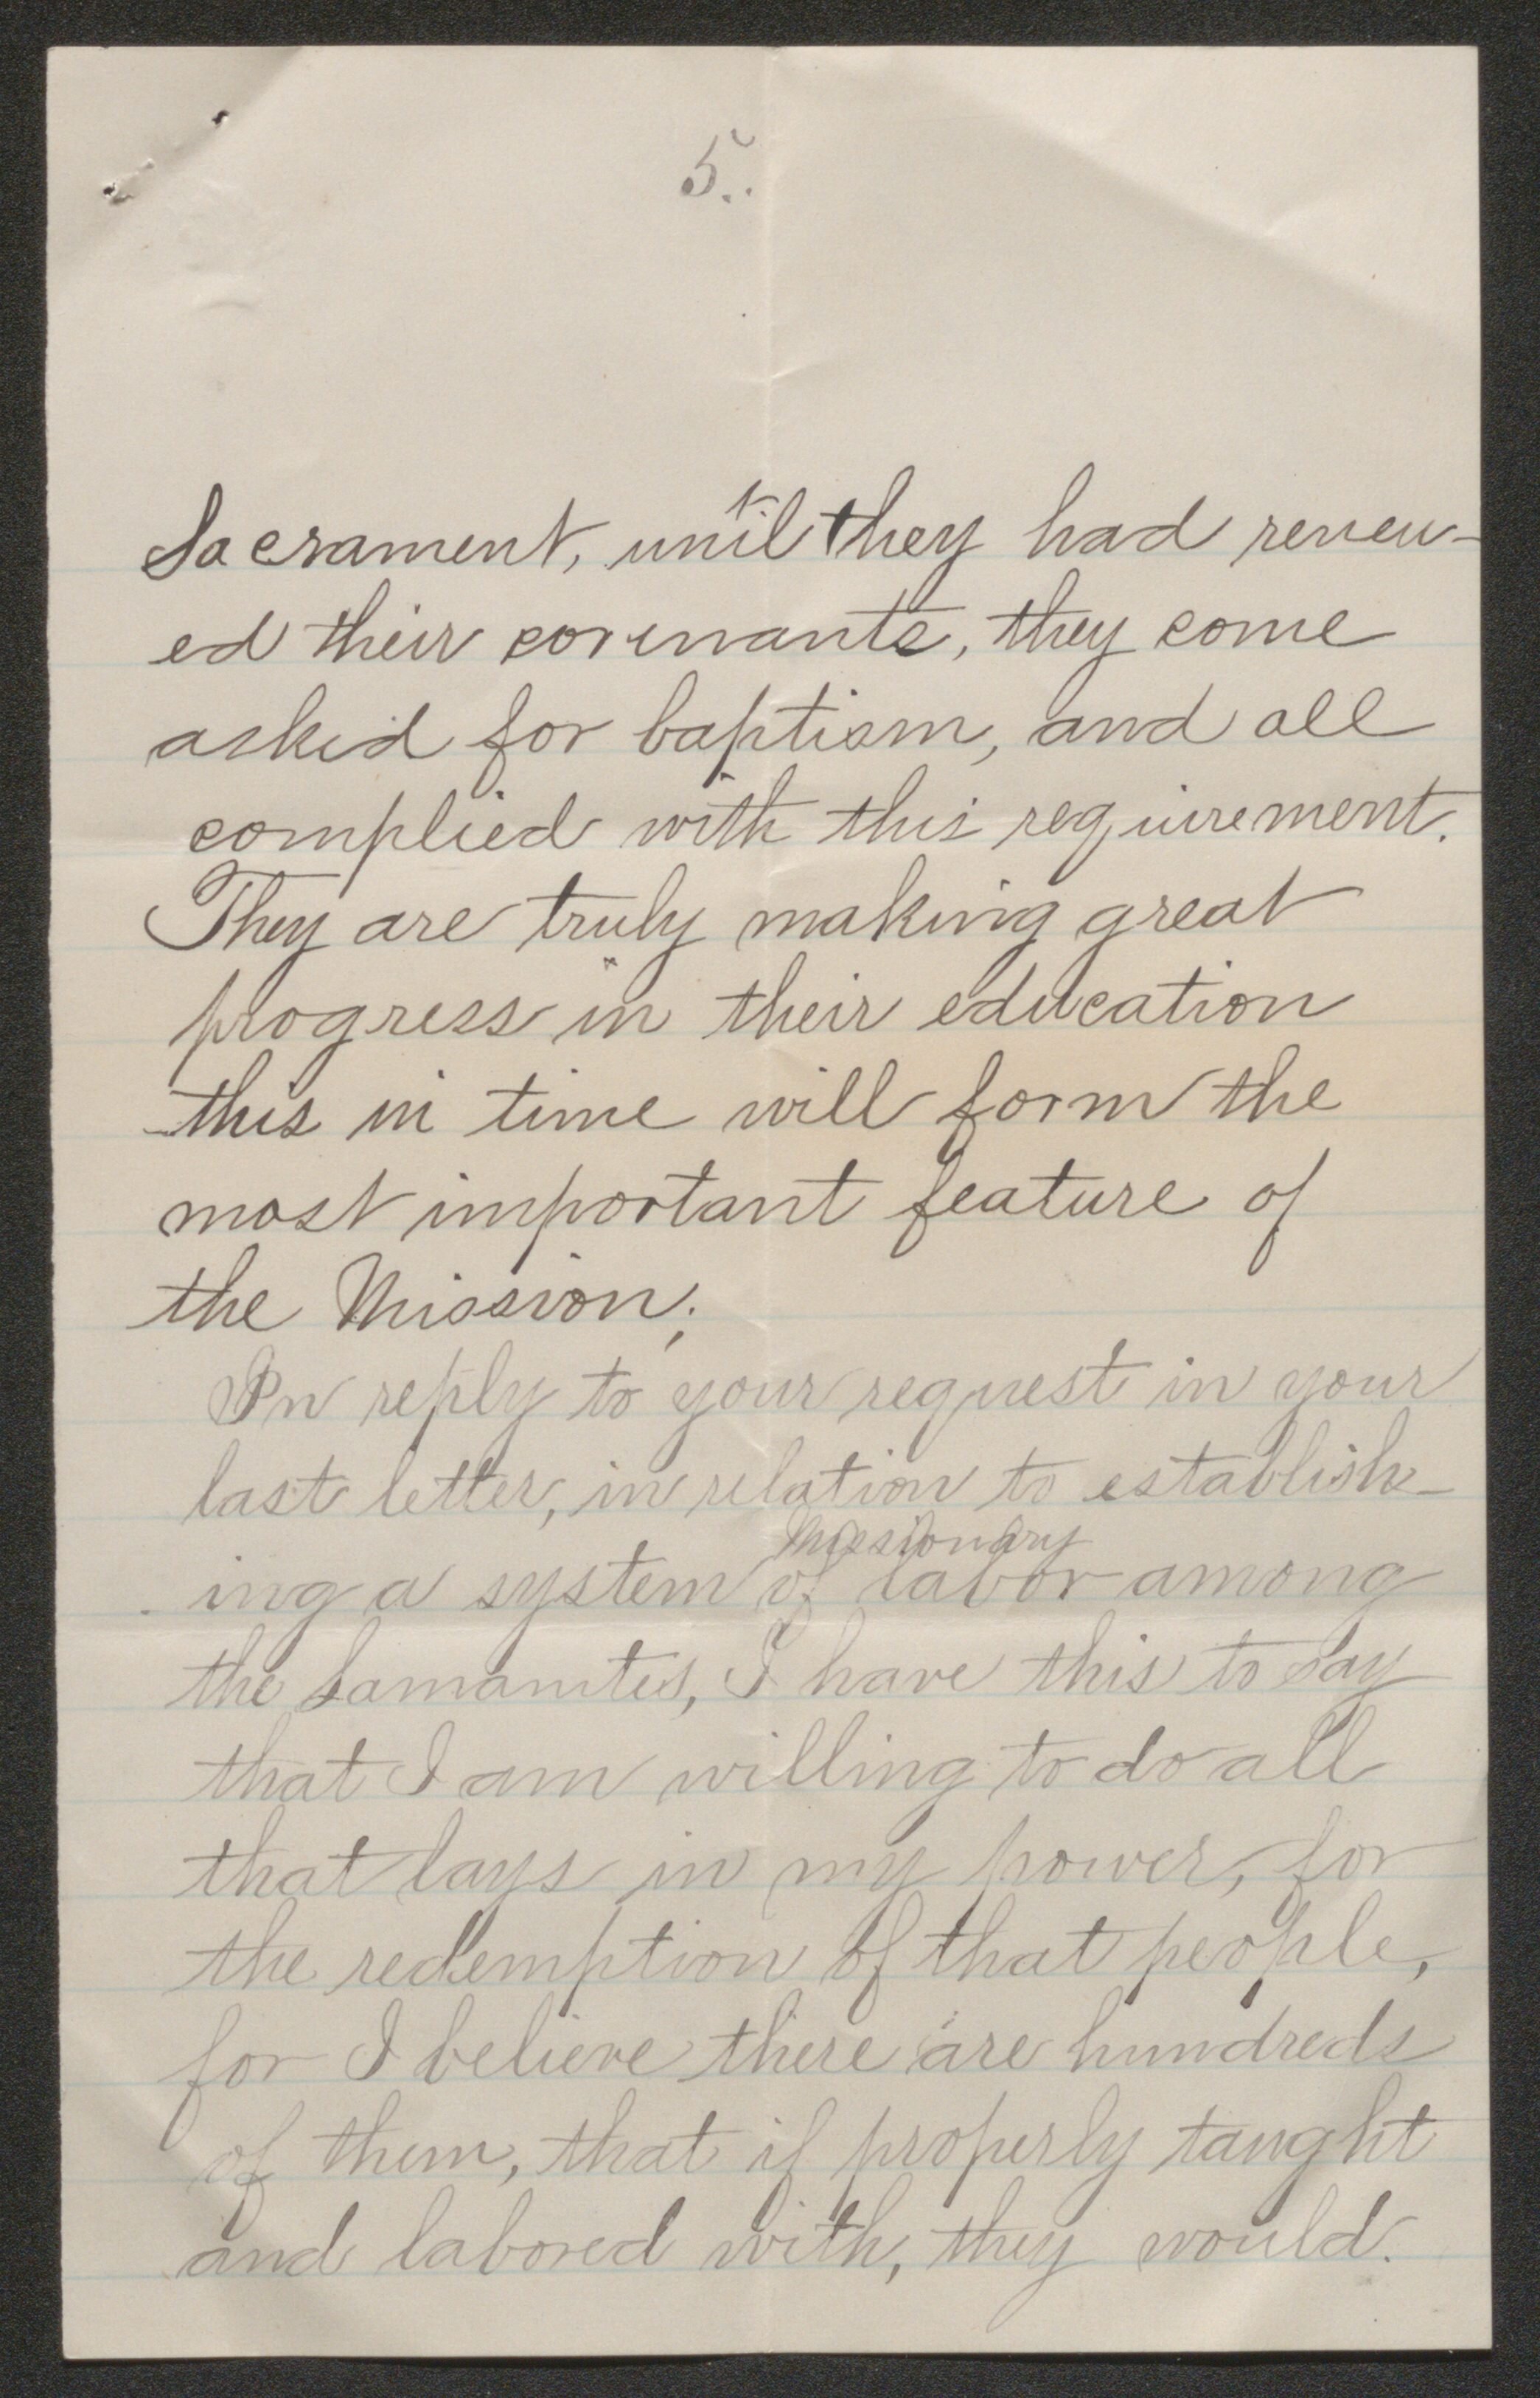 5..
Sacrament, until they had renew-
ed their covenants, they come
asked for baptism, and all
complied with this requirement.
They are truly making great
progress in their education
this in time will form the
most important feature of
the Mission;
In reply to your request in your
last letter, in relation to establish-
Missionary
ing a system of labor among
the Lamanites, I have this to say
that I am willing to do all
that lays in my power, for
the redemption of that people,
for I believe there are hundreds
of them, that if properly taught
and labored with, they would.